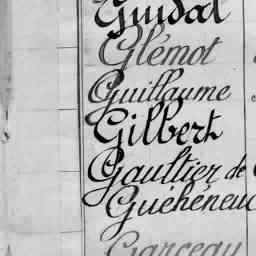 Guidal
Glémot
Guillaume
Gilbert
Gaultier de
Guéhéneuc
Garceau